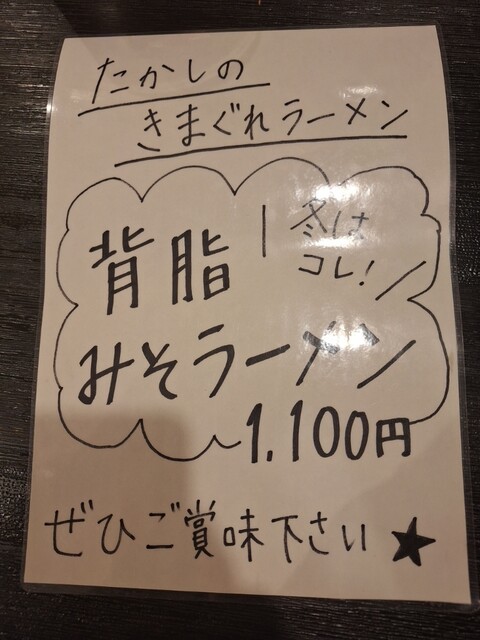 たかしの
きまぐれラーメン
冬は
コレ!
背脂
みそラーメン
1.100円
ぜひご賞味下さい★